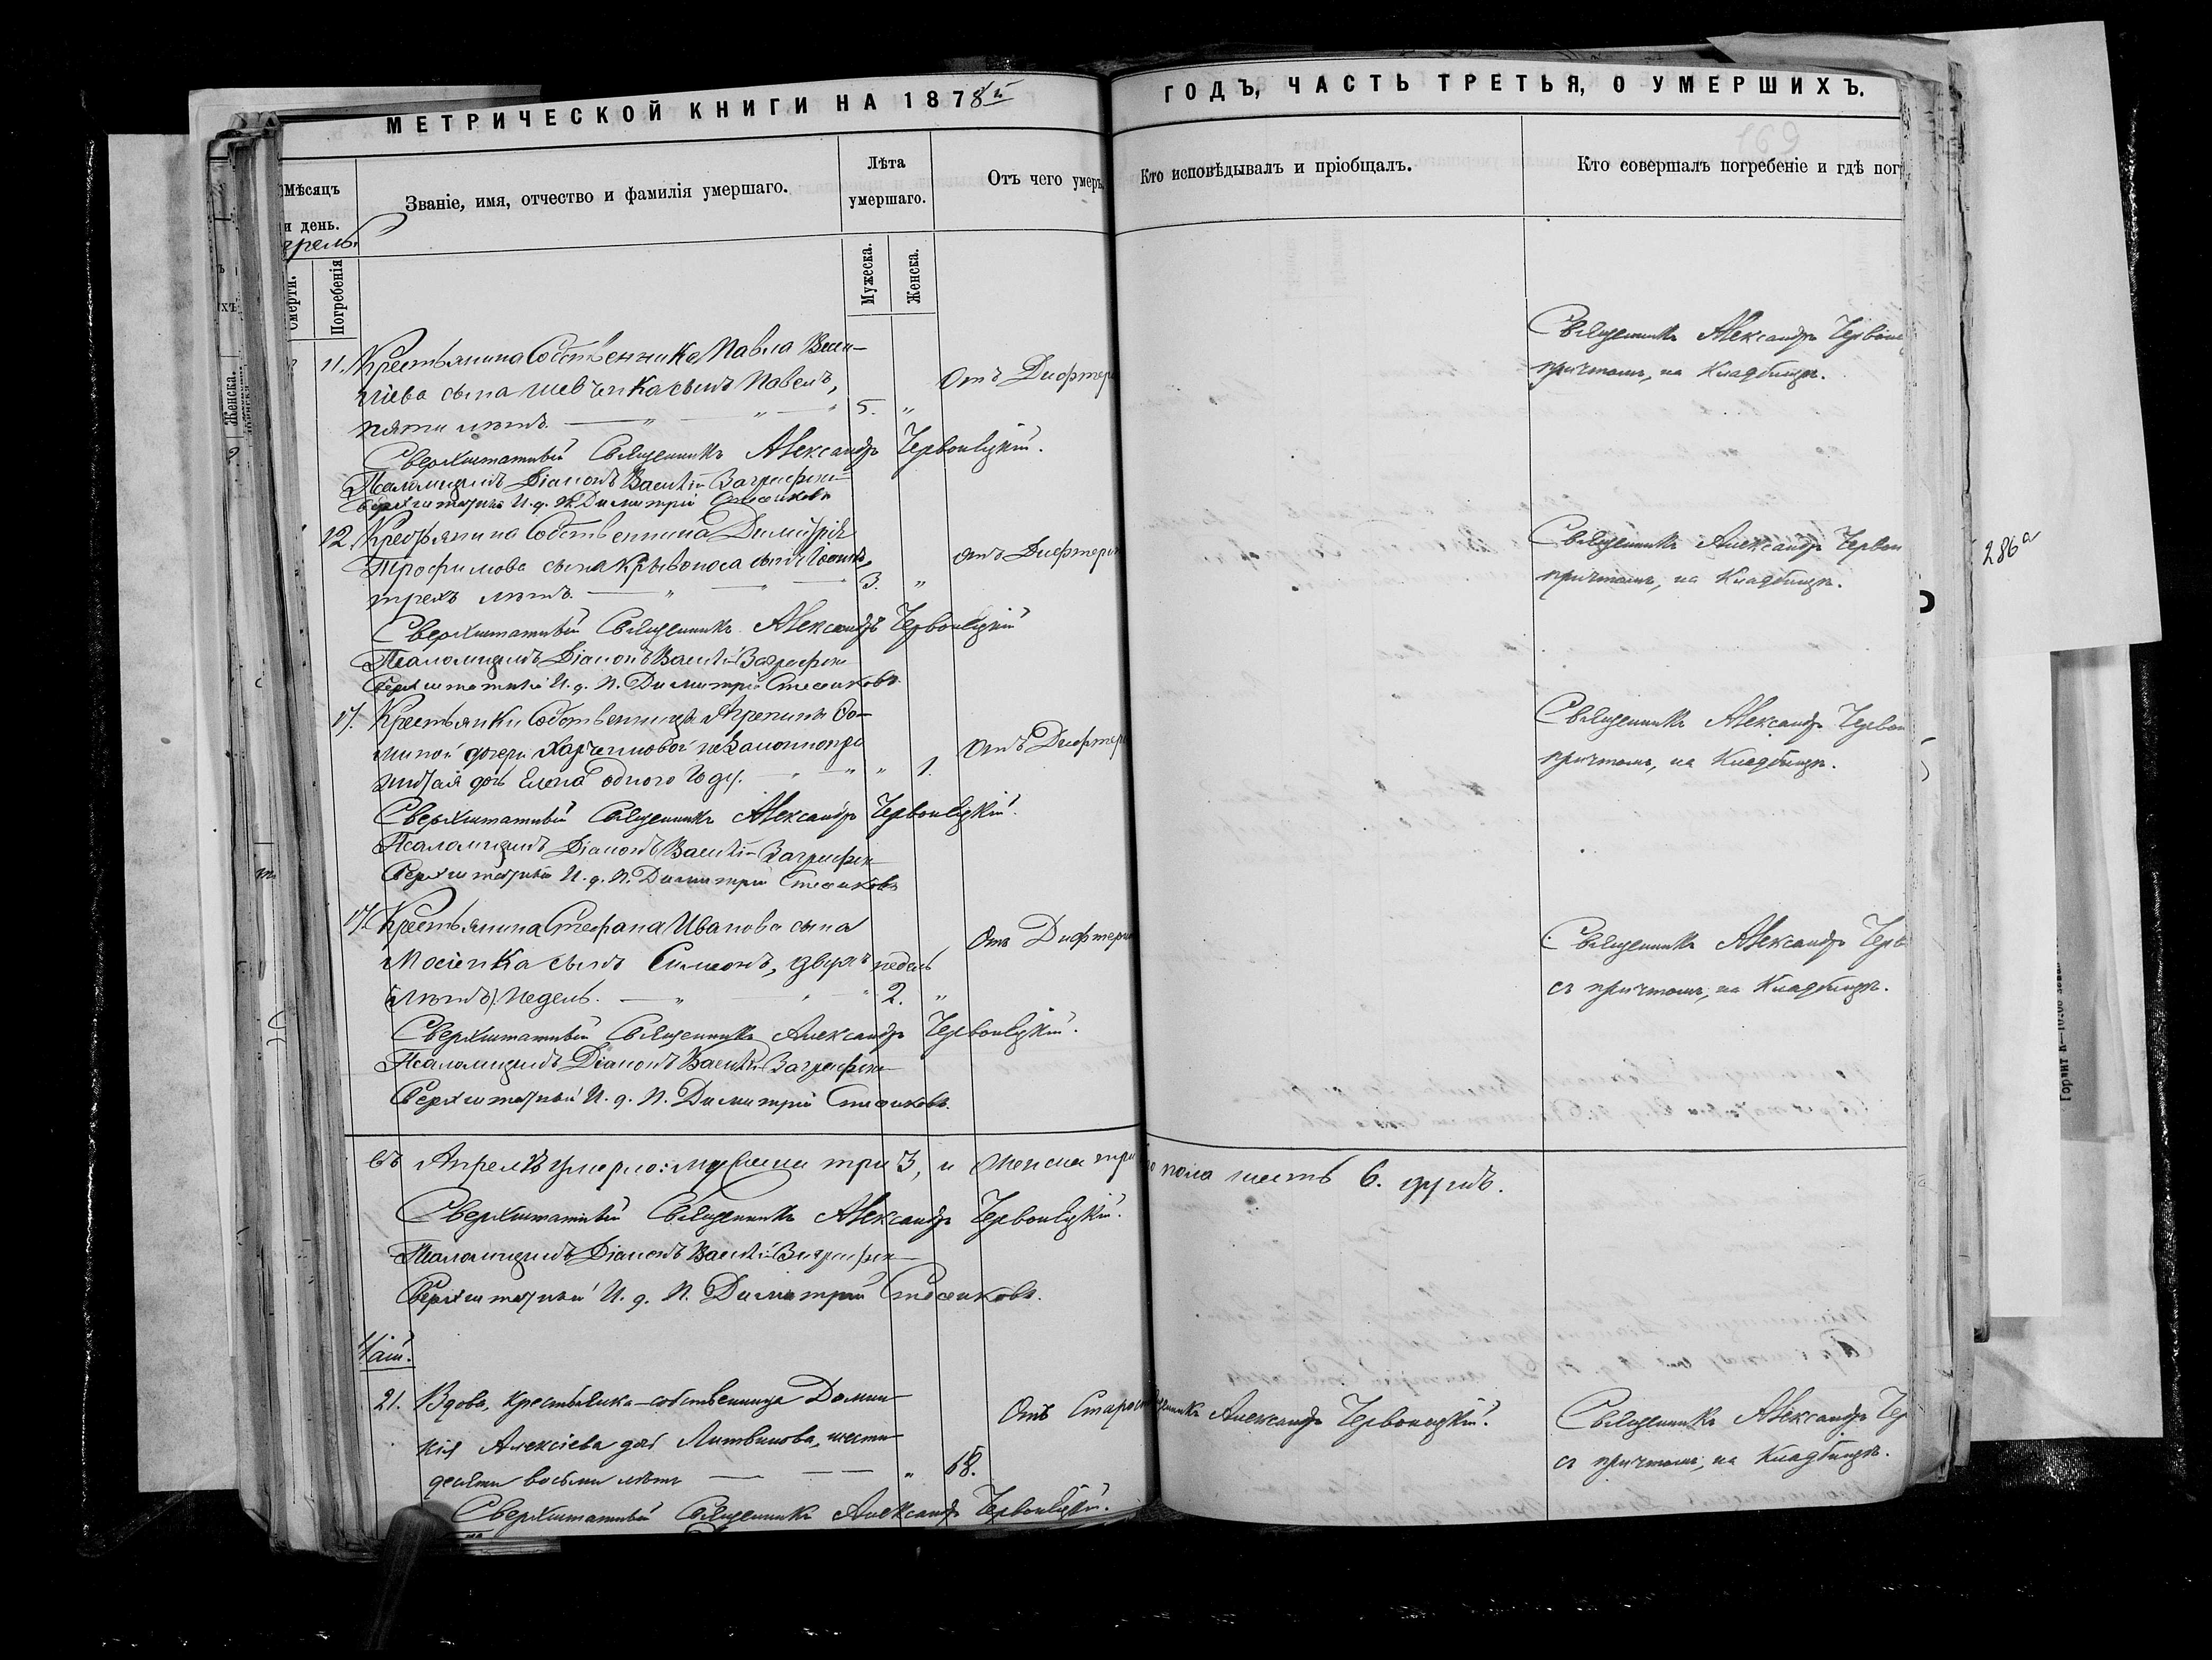 МЕТРИЧЕСКОЙ КНИГИ НА 1878й
ГОДЪ, ЧАСТЬ ТРЕТЬЯ, О УМЕРШИХЪ.
Мѣсяцъ
и день.
Званіе, имя, отчество и фамилія умершаго.
Лѣта
умершаго.
Отъ чего умеръ.
Кто исповѣдывалъ и пріобщалъ.
Кто совершалъ погребеніе и гдѣ пог
Погребенія
Мужеска.
Женска.
11. Крестьянина Собственника Павла
сына Шевченка сынъ Павелъ,
пяти лѣтъ. 5. "
Отъ Дифтери
Священникъ Александръ
причтомъ, на Кладбищѣ.
Сверхштатный Священникъ Александръ Червонецкій.
Псаломщикъ Діаконъ Василій
Сверхштатный И. д. П. Димитрій
12. Крестьянина Собственника Димитрія
Трофимова сына Кривоноса сынъ Іоаннъ,
трехъ лѣтъ. 3. "
Отъ Дифтери
Священникъ Александръ Червон
причтомъ, на Кладбищѣ.
Сверхштатный Священникъ Александръ Червонецкій
Псаломщикъ Діаконъ Василій
Сверхштатный И. д. П. Димитрій
17. Крестьянки Собственницы Агрепины Фо-
миной дочери
дочь Елена одного году. " 1.
Отъ Дифтери
Священникъ Александръ Червон
причтомъ, на Кладбищѣ.
Сверхштатный Священникъ Александръ Червонецкій.
Псаломщикъ Діаконъ Василій
Сверхштатный И. д. П. Димитрій
17. Крестьянина Стефана Иванова сына
Мосіенка сынъ Симеонъ, двухъ недель
(лѣтъ) недель. 2. "
Отъ Дифтери
Священникъ Александръ Черв
съ причтомъ, на Кладбищѣ.
Сверхштатный Священникъ Александръ Червонецкій.
Псаломщикъ Діаконъ Василій
Сверхштатный И. д. П. Димитрій
Въ Апрелѣ умерло: мужеска три 3, и женска три
пола шесть 6. душъ.
Сверхштатный Священникъ Александръ Червонецкій.
Псаломщикъ Діаконъ Василій
Сверхштатный И. д. П. Димитрій
21. Вдова, крестьянка-собственница Домни-
кія Алексіева дочь Литвинова, шести-
десяти восьми лѣтъ " 68.
Отъ Старос
Александръ Червонецкій.
Священникъ Александръ Чер
съ причтомъ, на Кладбищѣ.
Сверхштатный Священникъ Александръ Червонецкій.
286а